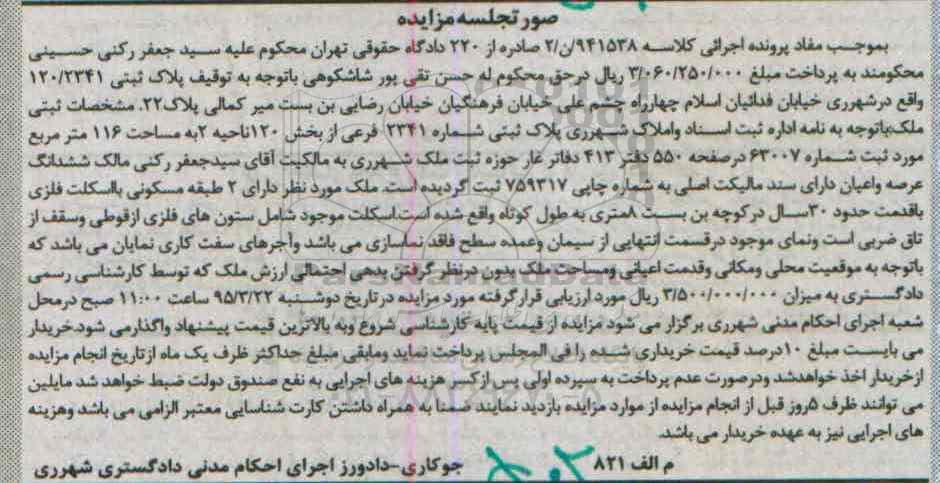 صورتجلسه مزایده
بموجب مفاد پرونده اجرائی کلاسه ۹۴۱۵۳۸/ن/۲ صادره از ۲۲۰ دادگاه حقوقی تهران محکوم علیه سید جعفر رکنی حسینی
محکومند به پرداخت مبلغ ۳/۰۶۰/۲۵۰/۰۰۰ ریال درحق محکوم له حسن تقی پور شاشکوهی باتوجه به توقیف پلاک ثبتی ۱۲۰/۲۳۴۱
واقع درشهرری خیابان فدائیان اسلام چهارراه چشم علی خیابان فرهنگیان خیابان رضایی بن بست میر کمالی پلاک۲۲. مشخصات ثبتی
ملک:باتوجه به نامه اداره ثبت اسناد واملاک شهرری پلاک ثبتی شماره ۲۳۴۱ فرعی از بخش ۱۲۰ناحیه ۲به مساحت ۱۱۶ متر مربع
مورد ثبت شماره ۶۳۰۰۷ درصفحه ۵۵۰ دفتر ۴۱۳ دفاتر غار حوزه ثبت ملک شهرری به مالکیت آقای سیدجعفر رکنی مالک ششدانگ
عرصه واعیان دارای سند مالیکت اصلی به شماره چاپی ۷۵۹۳۱۷ ثبت گردیده است. ملک مورد نظر دارای ۲ طبقه مسکونی بااسکلت فلزی
باقدمت حدود ۳۰سال درکوچه بن بست ۸متری به طول کوتاه واقع شده است.اسکلت موجود شامل ستون های فلزی ازقوطی وسقف از
تاق ضربی است ونمای موجود درقسمت انتهایی از سیمان وعمده سطح فاقد نماسازی می باشد وآجرهای سفت کاری نمایان می باشد که
باتوجه به موقعیت محلی ومکانی وقدمت اعیانی ومساحت ملک بدون درنظر گرفتن بدهی احتمالی ارزش ملک که توسط کارشناسی رسمی
دادگستری به میزان ۳/۵۰۰/۰۰۰/۰۰۰ ریال مورد ارزیابی قرارگرفته مورد مزایده درتاریخ دوشنبه ۹۵/۳/۲۲ ساعت ۱۱:۰۰ صبح درمحل
شعبه اجرای احکام مدنی شهرری برگزار می شود مزایده از قیمت پایه کارشناسی شروع وبه بالاترین قیمت پیشنهاد واگذارمی شود.خریدار
می بایست مبلغ ۱۰درصد قیمت خریداری شده را فی المجلس پرداخت نماید ومابقی مبلغ حداکثر ظرف یک ماه ازتاریخ انجام مزایده
ازخریدار اخذ خواهدشد ودرصورت عدم پرداخت به سپرده اولی پس ازکسر هزینه های اجرایی به نفع صندوق دولت ضبط خواهد شد مایلین
می توانند ظرف ۵روز قبل از انجام مزایده از موارد مزایده بازدید نمایند ضمنا به همراه داشتن کارت شناسایی معتبر الزامی می باشد وهزینه
های اجرایی نیز به عهده خریدار می باشد.
م الف ۸۲۱ جوکاری-دادورز اجرای احکام مدنی دادگستری شهرری